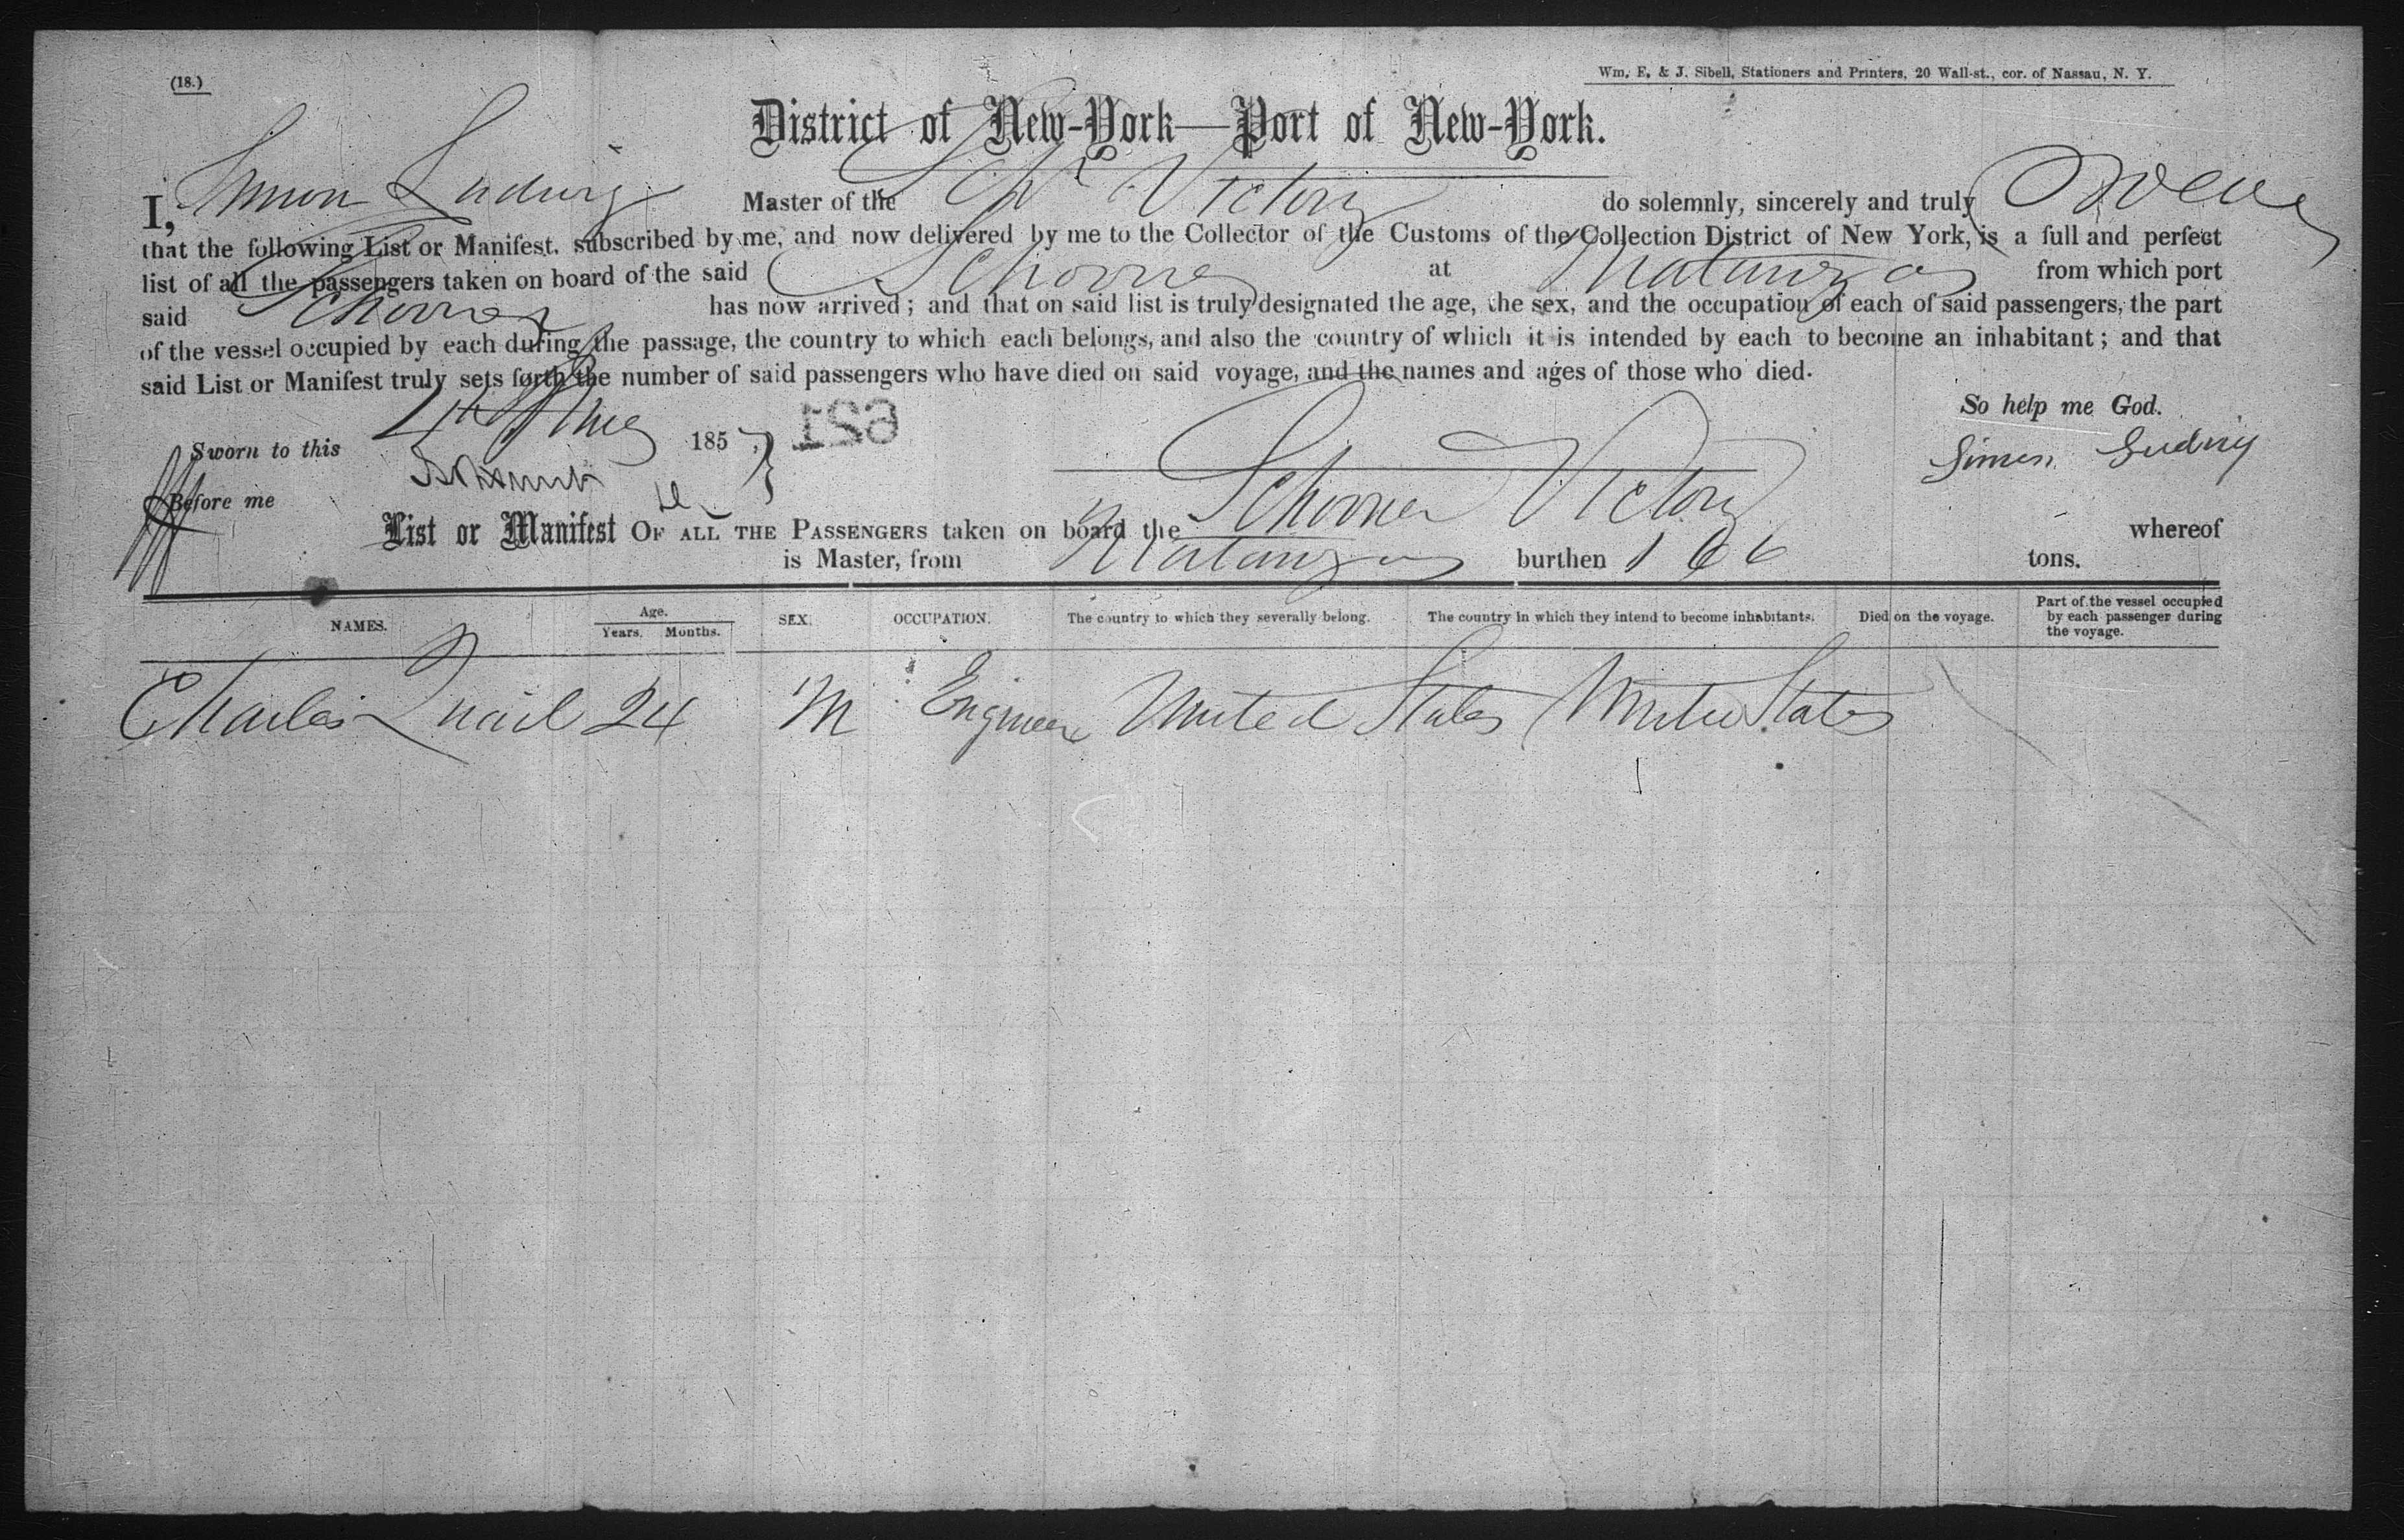 (18.)
Wm. E. & J. Sibell, Stationers and Printers, 20 Wall-st., cor. of Nassau, N. Y.
District of New-York—Port of New-York.
I, Simon Ludwig Master of the Schr Victory do solemnly, sincerely and truly Swear
that the following List or Manifest, subscribed by me, and now delivered by me to the Collector of the Customs of the Collection District of New York, is a full and perfect
list of all the passengers taken on board of the said Schooner at Matanzas from which port
said Schooner has now arrived; and that on said list is truly designated the age, the sex, and the occupation of each of said passengers, the part
of the vessel occupied by each during the passage, the country to which each belongs, and also the country of which it is intended by each to become an inhabitant; and that
said List or Manifest truly sets forth the number of said passengers who have died on said voyage, and the names and ages of those who died.
So help me God.
Sworn to this 4th Aug 1857 629
Simon Ludwig
Before me
List or Manifest OF ALL THE PASSENGERS taken on board the Schooner Victory whereof
is Master, from Matanzas burthen 166 tons.
NAMES. Age. Years. Months. SEX. OCCUPATION. The country to which they severally belong. The country in which they intend to become inhabitants. Died on the voyage. Part of the vessel occupied by each passenger during the voyage.
Charles Quail 24 M Engineer United States United States